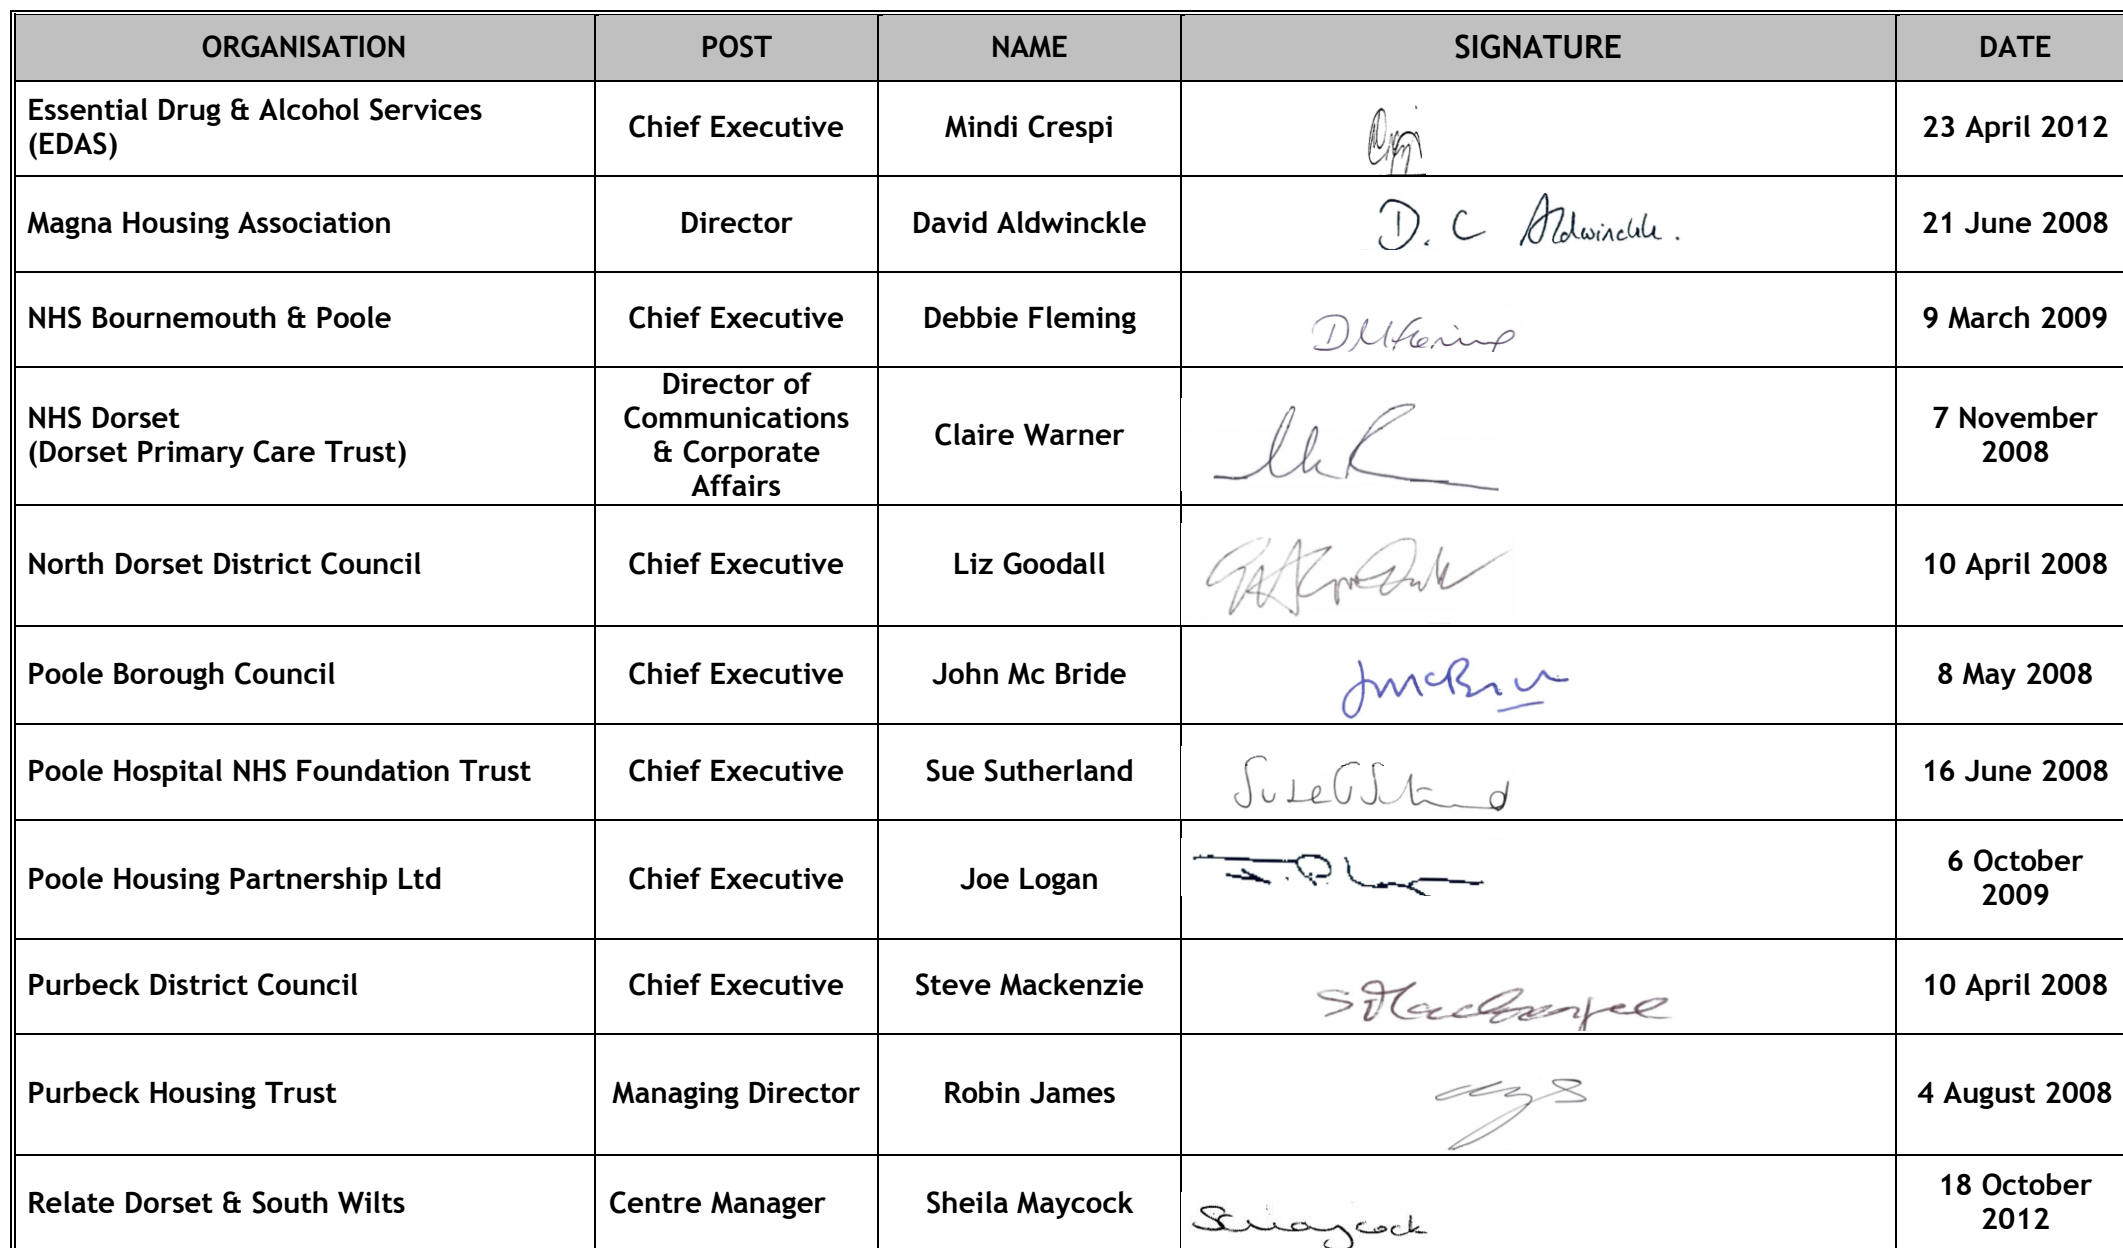 ORGANISATION POST NAME SIGNATURE DATE
Essential Drug & Alcohol Services
(EDAS)
Chief Executive
Mindi Crespi
23 April 2012
Magna Housing Association
Director
David Aldwinckle
D. C Aldwinckle.
21 June 2008
NHS Bournemouth & Poole
Chief Executive
Debbie Fleming
9 March 2009
NHS Dorset
(Dorset Primary Care Trust)
Director of
Communications
& Corporate
Affairs
Claire Warner
7 November
2008
North Dorset District Council
Chief Executive
Liz Goodall
10 April 2008
Poole Borough Council
Chief Executive
John Mc Bride
8 May 2008
Poole Hospital NHS Foundation Trust
Chief Executive
Sue Sutherland
16 June 2008
Poole Housing Partnership Ltd
Chief Executive
Joe Logan
6 October
2009
Purbeck District Council
Chief Executive
Steve Mackenzie
10 April 2008
Purbeck Housing Trust
Managing Director
Robin James
4 August 2008
Relate Dorset & South Wilts
Centre Manager
Sheila Maycock
18 October
2012